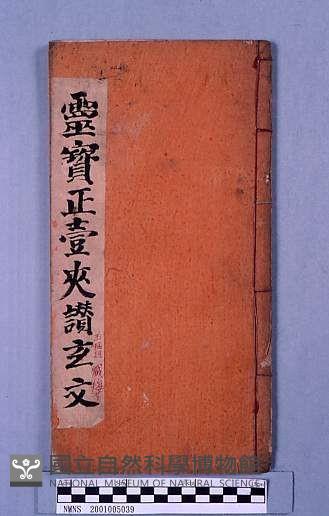 靈寶正壹夾讚玄文
國立自然科學博物館
NATIONAL MUSEUM OF NATURAL SCIENCE
NMNS 2001005039